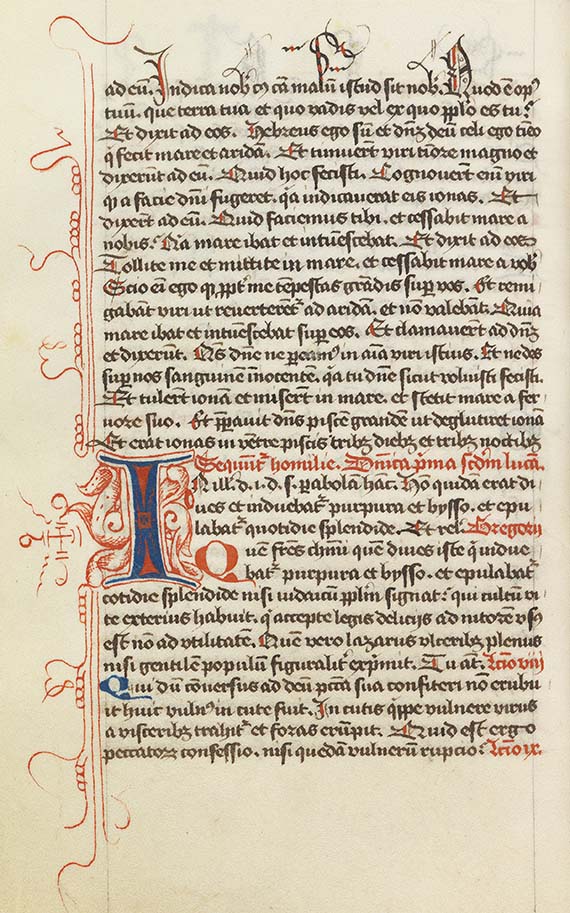 ad eū. Indica nob̄ cꝰ cā malū istud sit nob̄. Quod ē opꝰ
tuū. que terra tua et quo vadis vel ex quo pplo es tu?
Et dixit ad eos. Hebreus ego sū et dnȝ deū celi ego tīeo
q̇ fecit mare et aridā. Et timuerūt viri tīore magno et
dixerūt ad eū. Quid hoc fecisti. Cognouerūt enī viri
qꝫ a facie dnī fugeret. q̇a indicauerat eis ionas. Et
dixerūt ad eū. Quid faciemus tibi. et cessabit mare a
nobis. Na mare ibat et intūescebat. Et dixit ad eos
Tollite me et mittite in mare. et cessabit mare a vob̄
Scio eī ego qꝫ ppt̄ me tēpestas grādis suꝑ vos. Et remi
gabāt viri ut reuerterēt̄ ad aridā. et nō valebāt. Quia
mare ibat et intūescebat suꝑ eos. Et clamauerūt ad dnȝ
et dixerūt. Qs̄ dn̄e ne ꝑeamꝰ in aīa viri istius. Et ne des
suꝑ nos sanguinē īnocentē. q̇a tu dn̄e sicut voluisti fecisti.
Et tulerūt ionā et miserūt in mare. et stetit mare a fer
uore suo. Et p̄parauit dn̄s piscē grandē ut deglutiret ionā
Et erat ionas in vētre piscis tribꝫ diebꝫ et tribꝫ noctibꝫ
Sequūt̄ homilie. Dn̄ica p̄ma scd̄m lucā.
IN ill. d. i. d. s. ꝑabolā hāc. Hō quidā erat di
ues et induebat̄ purpura et bysso. et epu
labat̄ quotidie splendide. Et rel. Gregorij
Quē fr̄es chm̄i quē diues iste q̇ indue
bat̄ purpura et bysso. et epulabat̄
cotidie splendide nisi iudaicū pplm̄ signat? qui cultū vi
te exterius habuit. q̇ accepte legis delicijs ad nitorē vsꝰ
est nō ad vtilitatē. Quē vero lazarus vlceribꝫ plenus
nisi gentilē populū figuralit̄ exp̄mit. Tu aūt. Lc̄io viij
Qui dū cōuersus ad deū pctā sua confiteri nō erubu
it huic vulnꝰ in cute fuit. In cutis q̇ppe vulnere virus
a visceribꝫ trahit̄ et foras erūpit. Quid est ergo
peccatoꝝ confessio. nisi quedā vulnerū rupcio? Lc̄io ix.